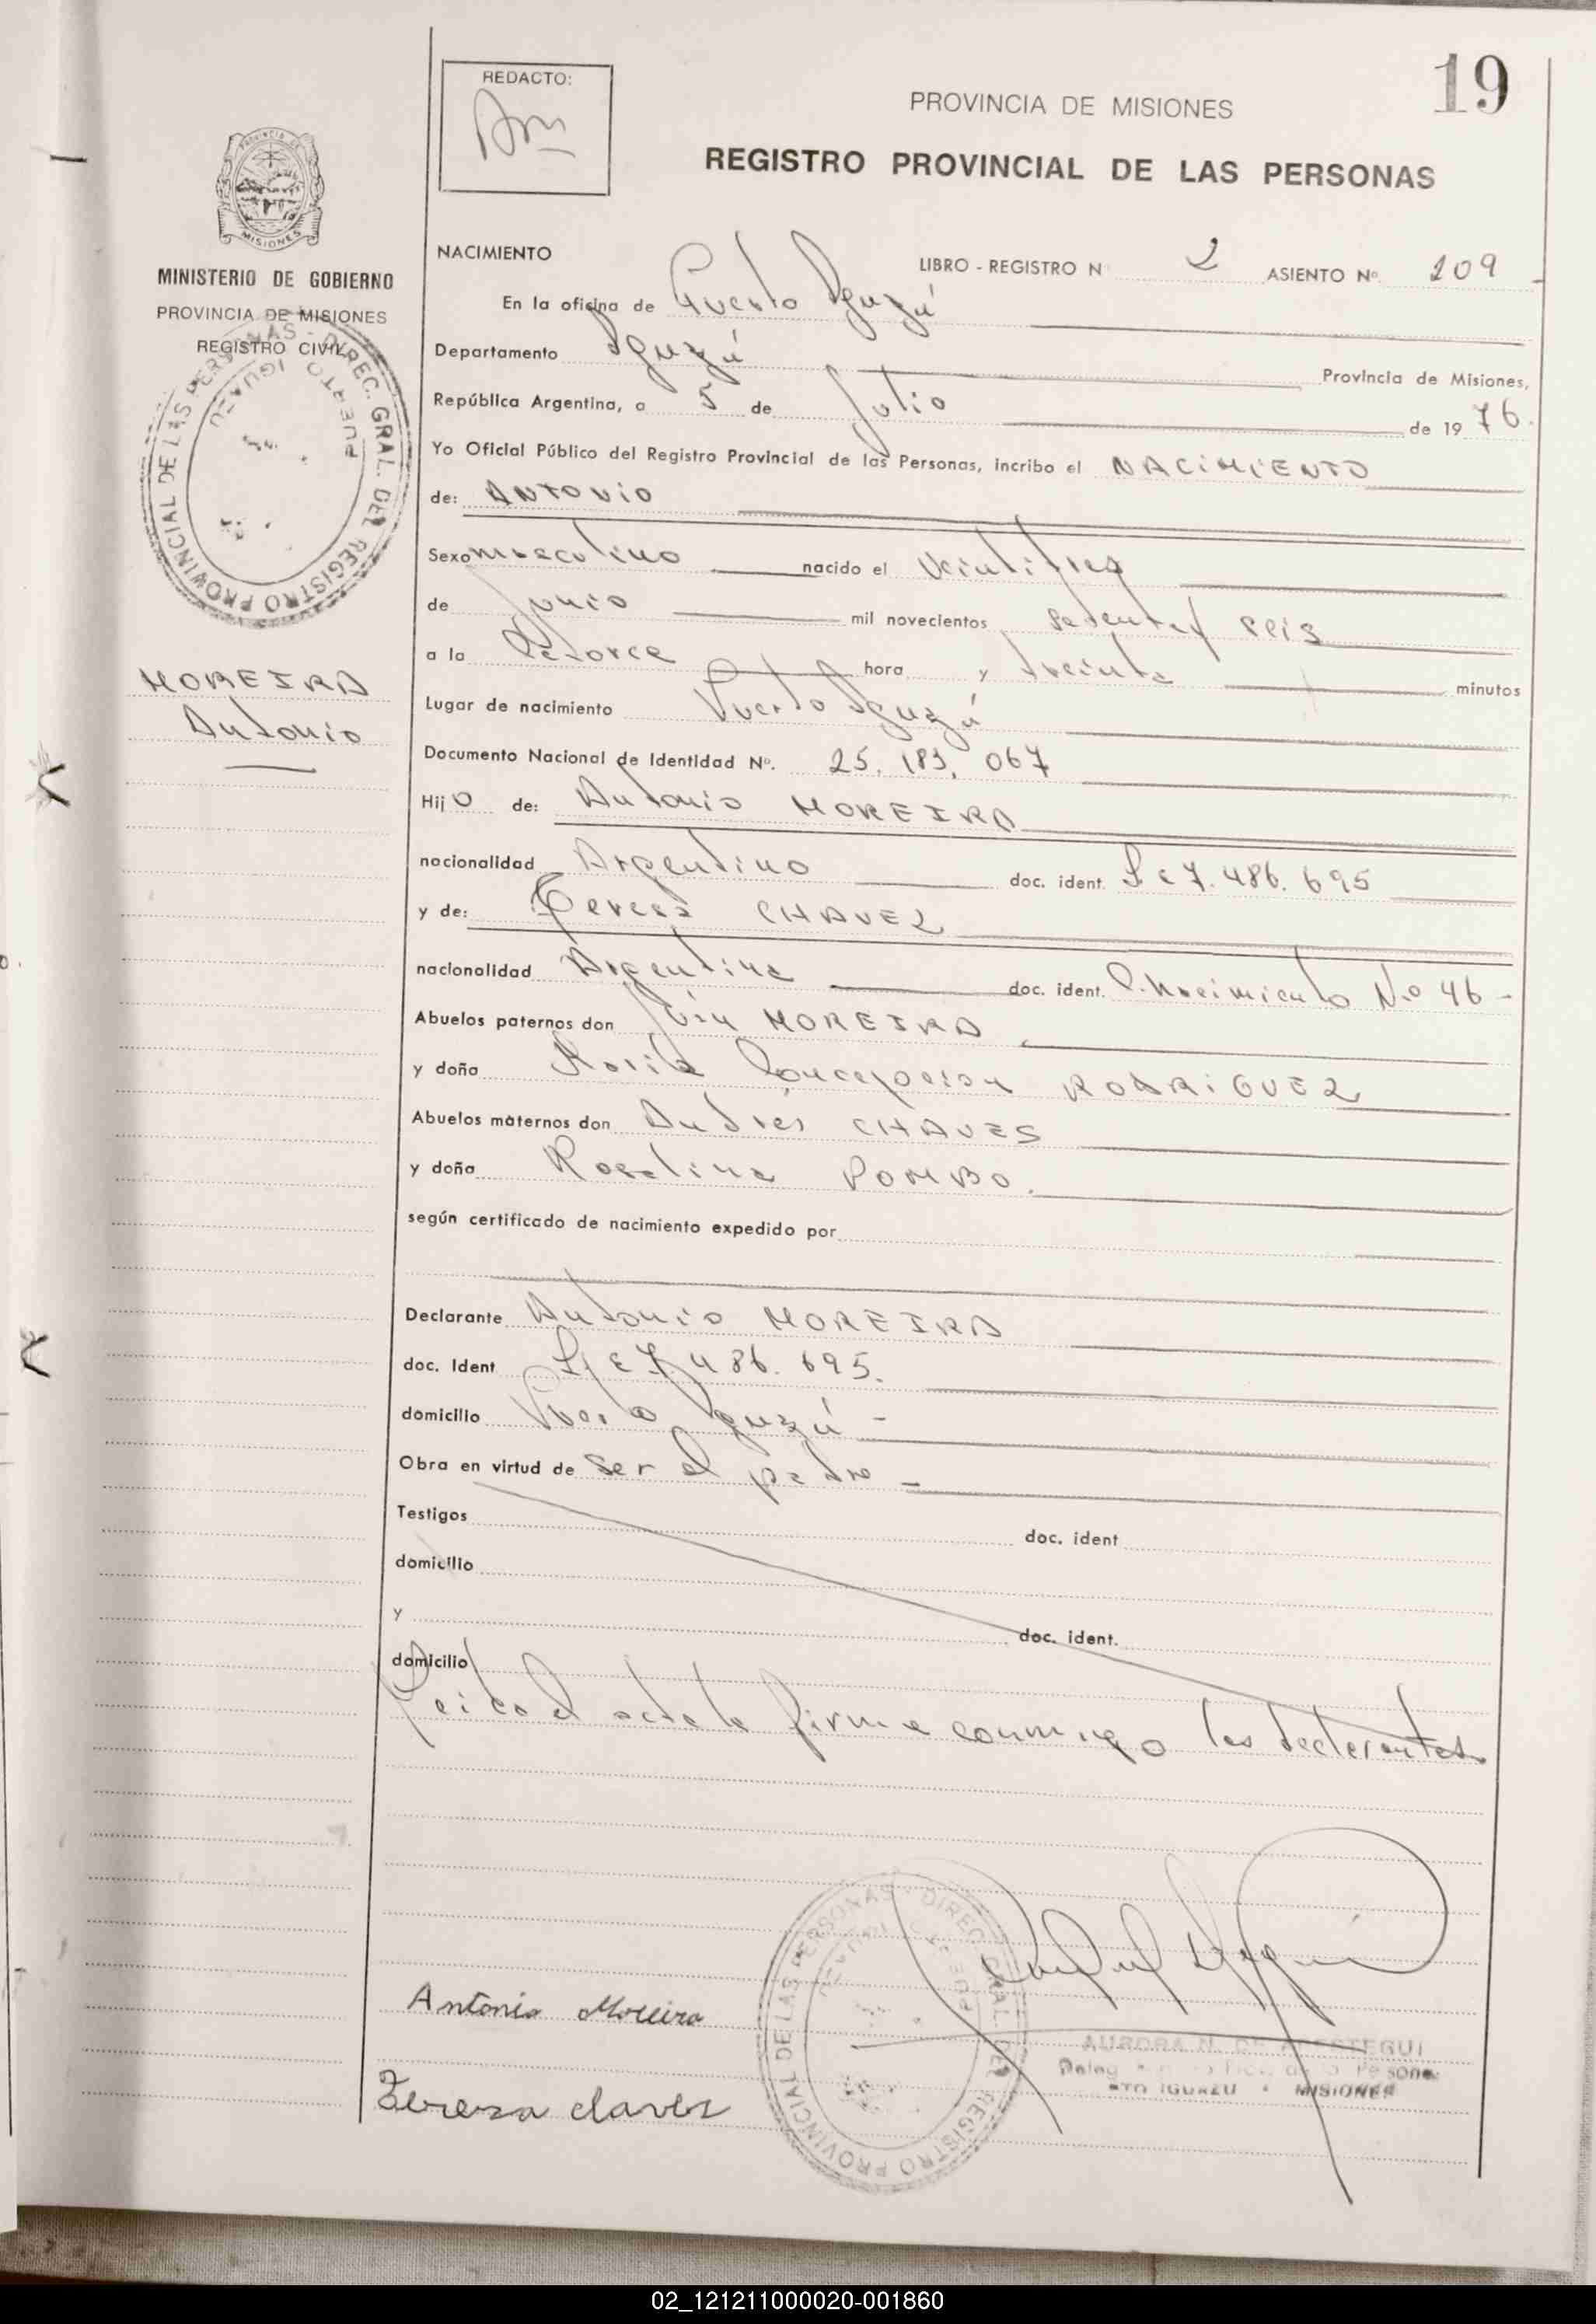 19
REDACTO:
PROVINCIA DE MISIONES
REGISTRO PROVINCIAL DE LAS PERSONAS
MISIONES
MINISTERIO DE GOBIERNO
PROVINCIA DE MISIONES
REGISTRO CIVIL
DIREC. GRAL. DEL REGISTRO PROVINCIAL DE LAS PERSONAS
PUERTO IGUAZU
MOREIRA
Antonio
NACIMIENTO LIBRO - REGISTRO N 2 ASIENTO Nº. 109
En la oficina de Puerto Iguazú
Departamento Iguazú Provincia de Misiones,
República Argentina, a 5 de Julio de 19 76.
Yo Oficial Público del Registro Provincial de las Personas, incribo el NACIMIENTO
de: ANTONIO
Sexo masculino nacido el veintitres
de Junio mil novecientos setenta y seis
a la catorce hora y treinta minutos
Lugar de nacimiento Puerto Iguazú
Documento Nacional de Identidad Nº. 25.183.067
Hijo de: Antonio MOREIRA
nacionalidad Argentino doc. ident. 7.486.695
y de: Teresa CHAVEZ
nacionalidad Argentina doc. ident. P. Nacimiento N.o 46 -
Abuelos paternos don Juan MOREIRA
y doña Maria Concepcion RODRIGUEZ
Abuelos maternos don Andrés CHAVES
y doña Rosalina POMBO.
según certificado de nacimiento expedido por
Declarante Antonio MOREIRA
doc. Ident 7.486.695.
domicilio Puerto Iguazú -
Obra en virtud de ser el padre -
Testigos doc. ident
domicilio
y doc. ident.
domicilio
Leida el acta la firman conmigo los declarantes
Antonio Moreira
DIREC. GRAL. DEL REGISTRO PROVINCIAL DE LAS PERSONAS
AURORA N. DE
PTO IGUAZU - MISIONES
Tereza claves
02_121211000020-001860